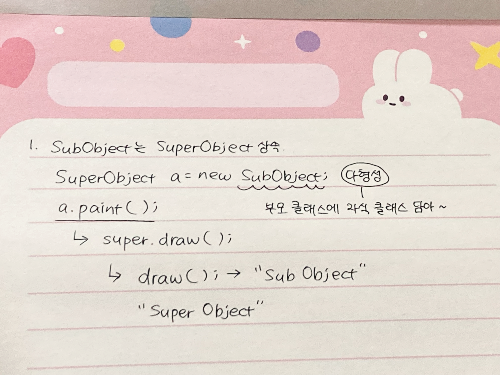 1. SubObject는 SuperObject 상속
SuperObject a = new SubObject; 다형성
a.paint(); 부모 클래스에 자식 클래스 담아~
↳ super.draw();
↳ draw(); → "Sub Object"
"Super Object"